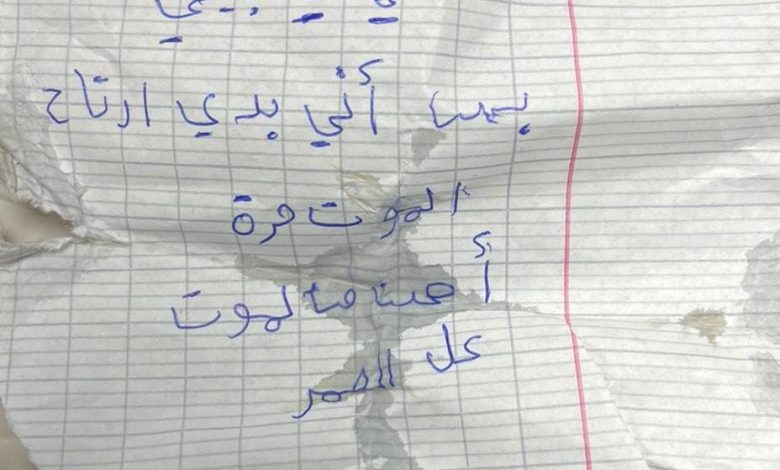 بس أني بدي ارتاح
الموت مرة
أحسن ما لموت
كل العمر